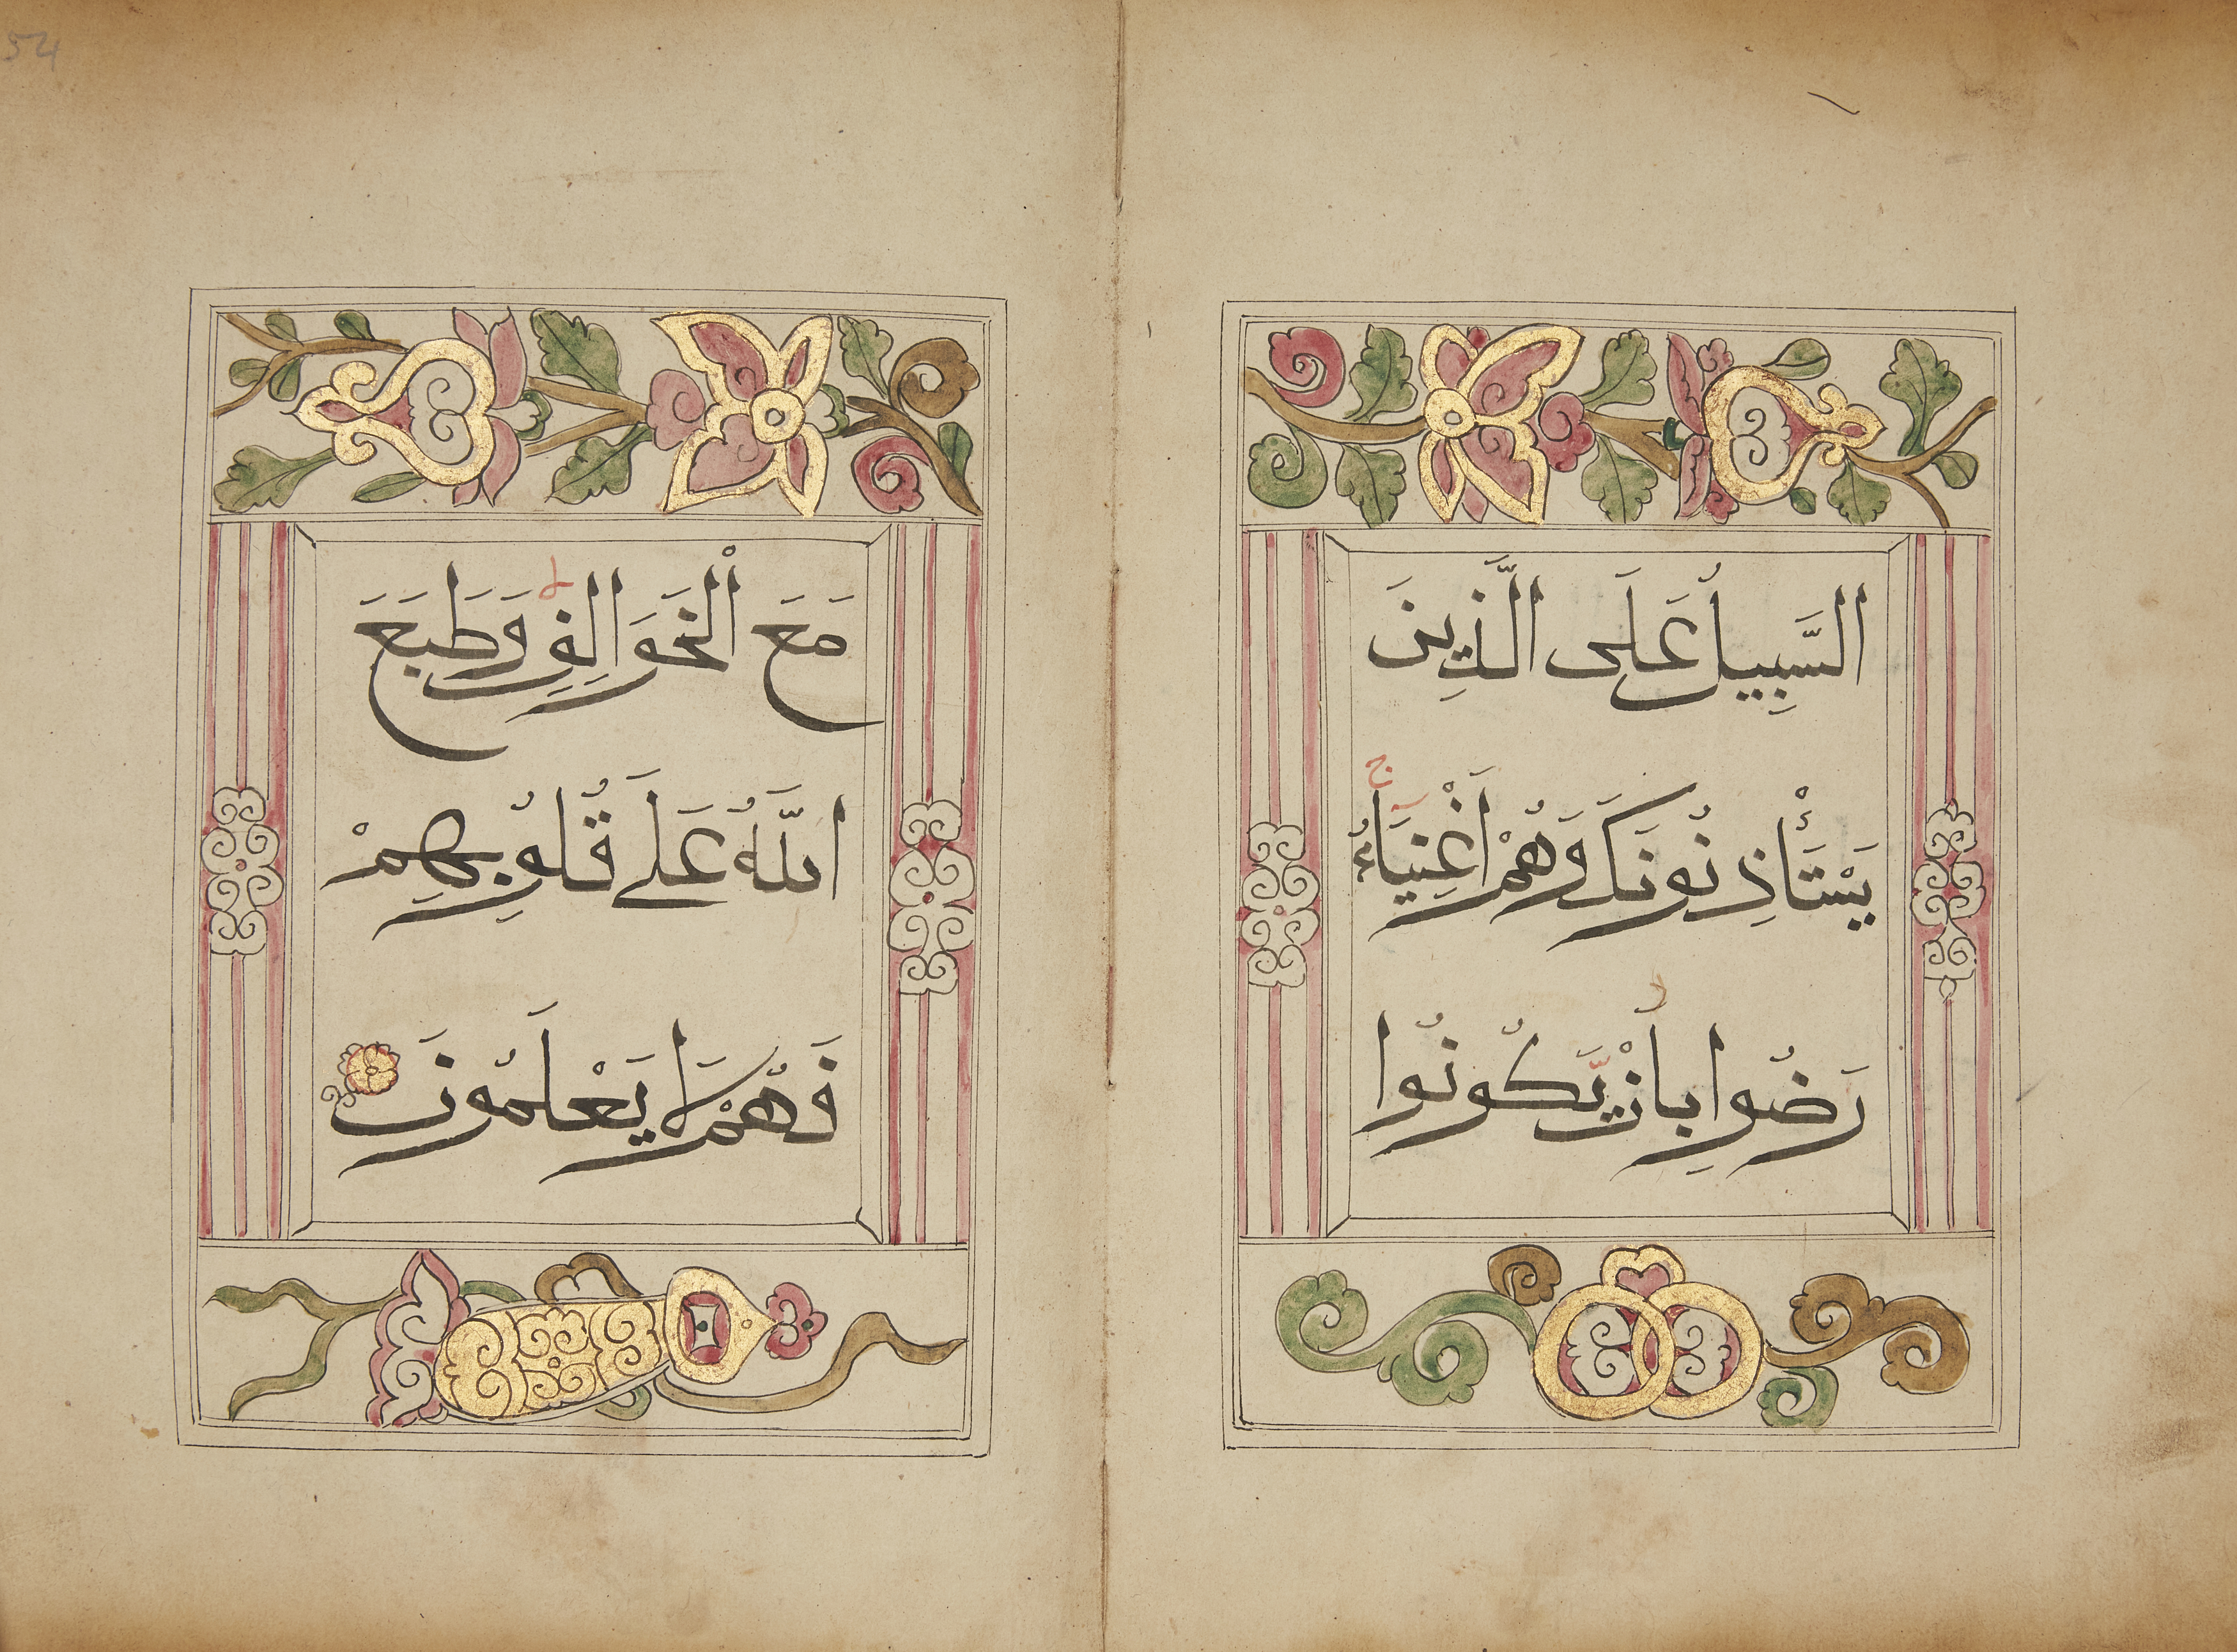 السَّبِيلُ عَلَى الَّذِينَ
يَسْتَأْذِنُونَكَ وَهُمْ أَغْنِيَاءُ ج
رَضُوا بِأَنْ يَّكُونُوا
مَعَ الْخَوَالِفِ ط وَطَبَعَ
اللَّهُ عَلَى قُلُوبِهِمْ
فَهُمْ لَا يَعْلَمُونَ
54